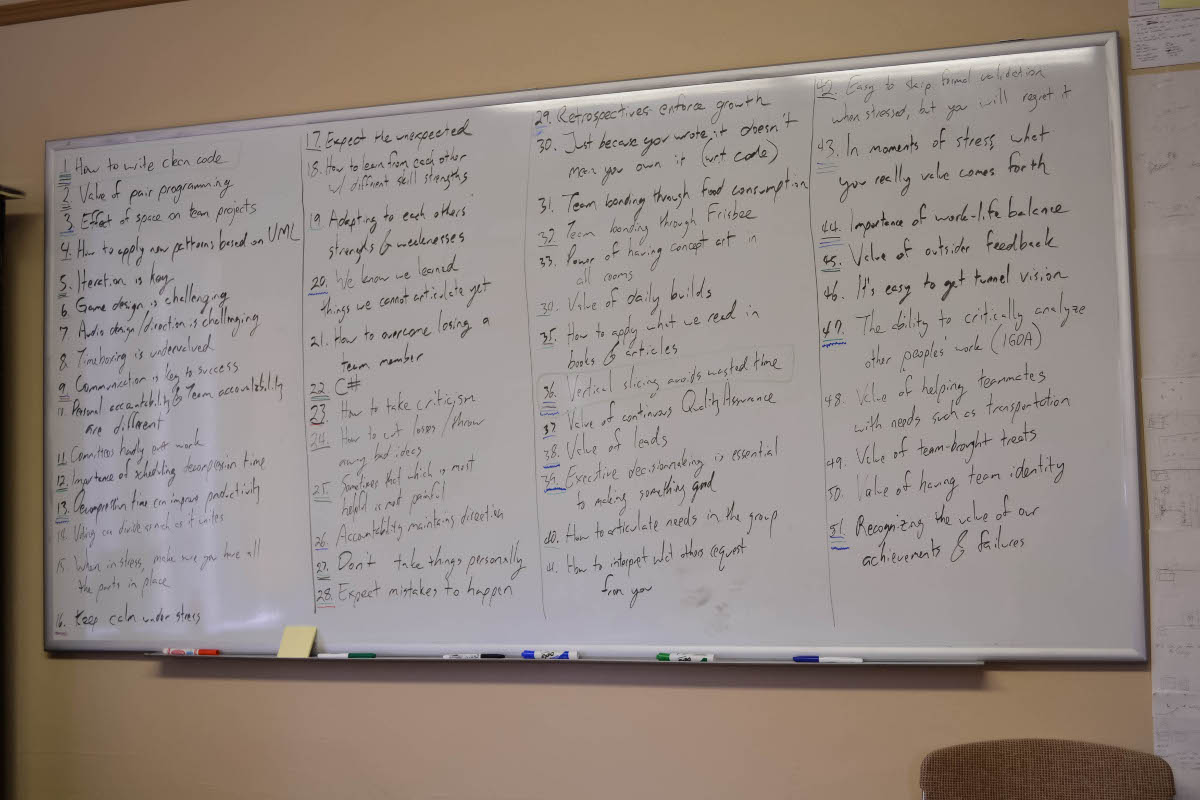 1. How to write clean code
2. Value of pair programming
3. Effect of space on team projects
4. How to apply new patterns based on UML
5. Iteration is key
6. Game design is challenging
7. Audio design/direction is challenging
8. Timeboxing is undervalued
9. Communication is key to success
10. Personal accountability & Team accountability
are different
11. Committees hardly ever work
12. Importance of scheduling decompression time
13. Decompression time can improve productivity
14. Voting can divide as much as it unites
15. When in stress, make sure you have all
the parts in place
16. Keep calm under stress
17. Expect the unexpected
18. How to learn from each other
w/ different skill strengths
19. Adapting to each others'
strengths & weaknesses
20. We know we learned
things we cannot articulate yet
21. How to overcome losing a
team member
22. C#
23. How to take criticism
24. How to cut losses/throw
away bad ideas
25. Sometimes that which is most
helpful is not painful
26. Accountability maintains direction
27. Don't take things personally
28. Expect mistakes to happen
29. Retrospectives enforce growth
30. Just because you wrote it doesn't
mean you own it (wrt code)
31. Team bonding through food consumption
32. Team bonding through Frisbee
33. Power of having concept art in
all rooms
30. Value of daily builds
35. How to apply what we read in
books & articles
36. Vertical slicing avoids wasted time
37. Value of continuous Quality Assurance
38. Value of leads
39. Executive decisionmaking is essential
to making something good
40. How to articulate needs in the group
41. How to interpret what others request
from you
42. Easy to skip formal validation
when stressed, but you will regret it
43. In moments of stress what
you really value comes forth
44. Importance of work-life balance
45. Value of outsider feedback
46. It's easy to get tunnel vision
47. The ability to critically analyze
other peoples' work (IGDA)
48. Value of helping teammates
with needs such as transportation
49. Value of team-bought treats
50. Value of having team identity
51. Recognizing the value of our
achievements & failures